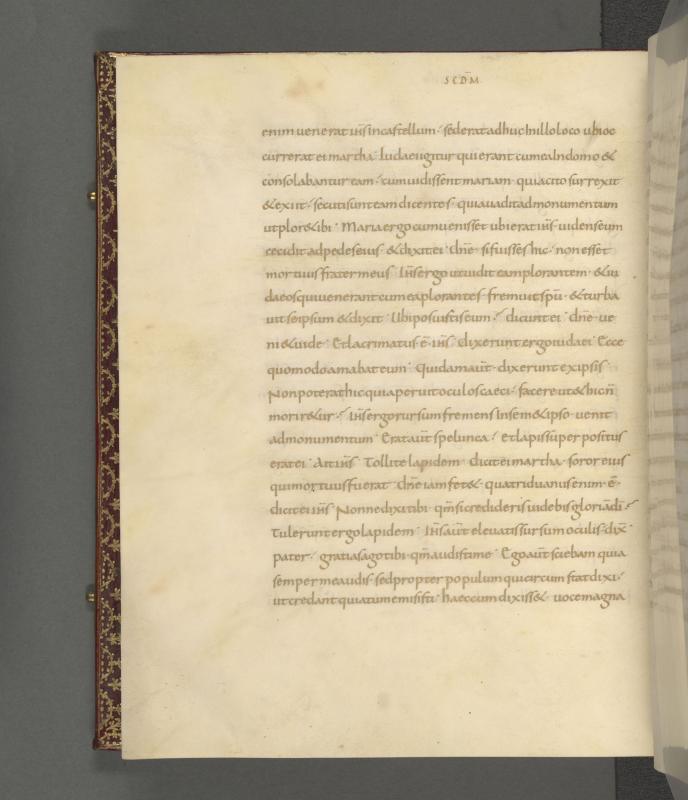 SCDM̄
enim uenerat ih̄s incastellum· sederat adhuc Inilloloco ubioc
currerat ei martha· Iudaei igitur quierant cumea Indomo &
consolabantur eam· cumuidissent mariam· quiacito surrexit
& exiit· secutisunteam dicentes· quiauaditadmonumentum
utplor& ibi· Maria ergo cumuenisset ubierat ih̄s· uidenseum
cecidit adpedeseius· & dixitei· dn̄e sifuisseshic· nonesset
mortuusfratermeus· Ih̄s ergo utuidit eamplorantem· & iu
daeosquiuenerantcumeaplorantes· fremuit spū· & turba
uit seipsum & dixit· Ubiposuistiseum· dicuntei· dn̄e ue
ni & uide· Etlacrimatus ē ih̄s· dixeruntergoiudaei· Ecce
quomodoamabateum· Quidamaūt· dixerunt exipsis·
Nonpoterathicquiaperuitoculoscaeci· facere ut & hic n̄
morir&ur· Ih̄s ergorursumfremens Insem&ipso· uenit
admonumentum· Erataūt spelunca· & lapis sup̄er positus
eratei· Ait ih̄s· Tollite lapidem· dicitei martha· soror eius
quimortuusfuerat· dn̄e iamfet&· quatriduanusenim ē·
dicitei ih̄s· Nonnedixitibi· qm̄ sicredideris uidebisgloriādī·
Tulerunt ergolapidem· Ih̄s aūt eleuatissursumoculis· dix̄
pater· gratiasagotibi· qm̄ audistime· Egoaūt sciebam quia
sempermeaudis· sedpropter populum quicircumstat dixi·
utcredant quiatumemisisti· haeccumdixiss&· uocemagna